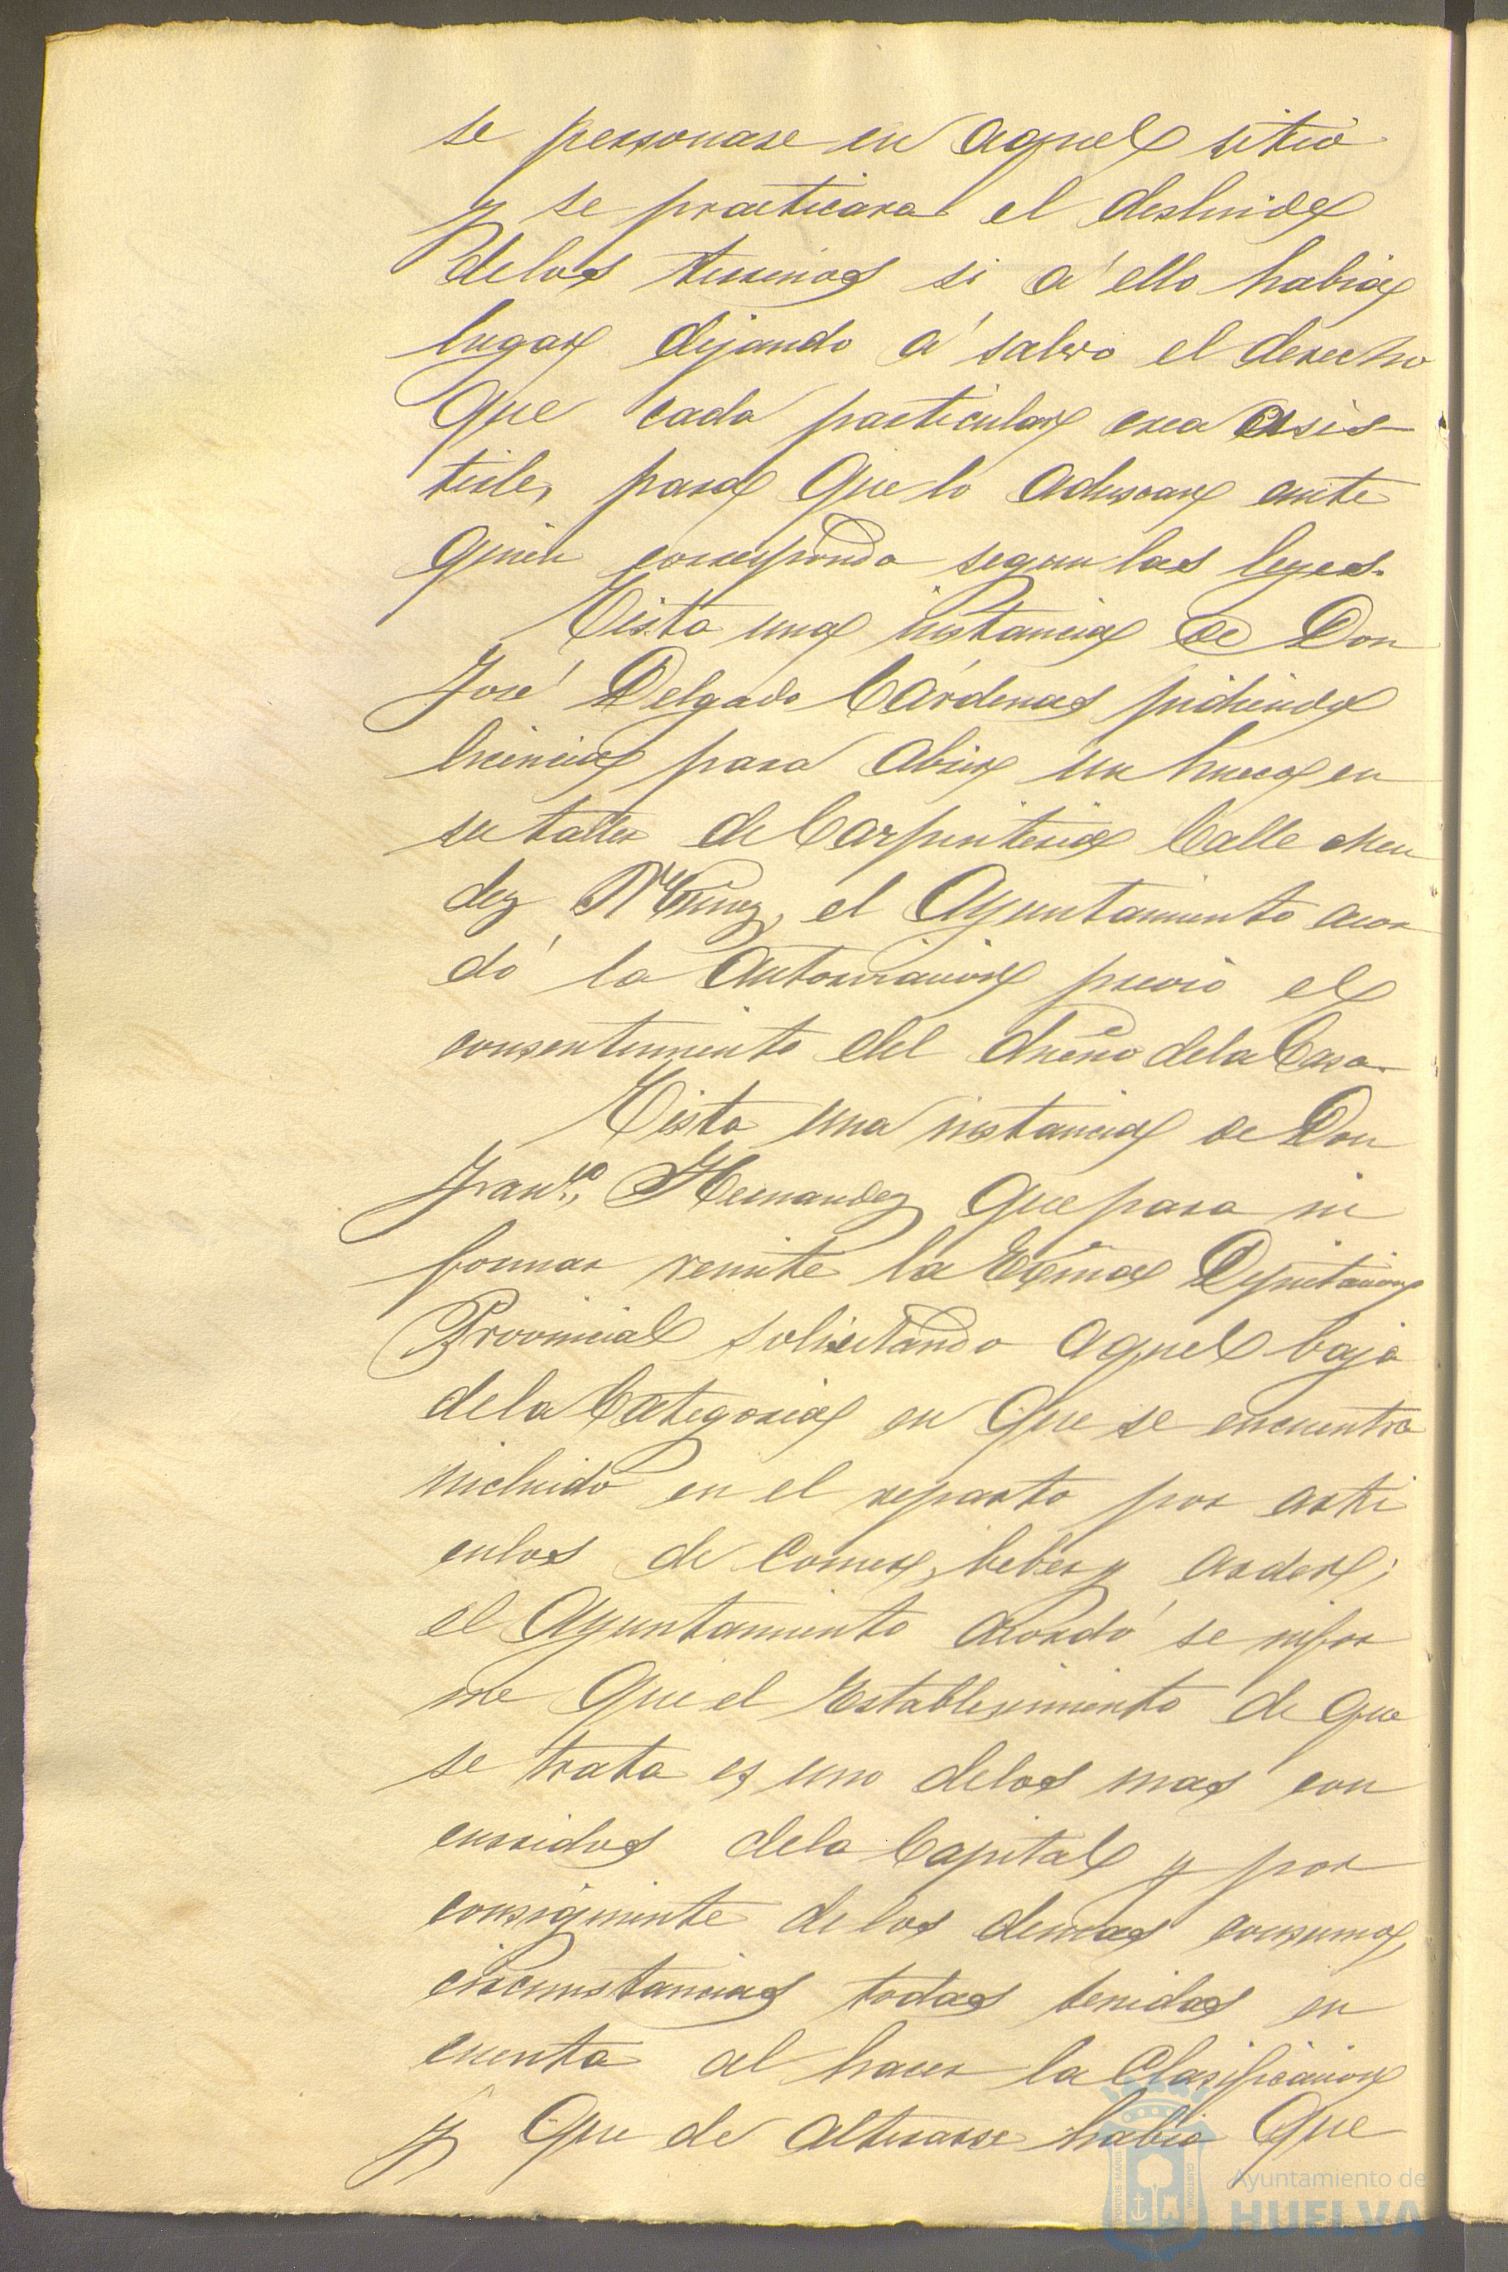 se personase en aquel sitio
y se practicara el deslinde
delos terrenos si á ello habia
lugar dejando á salvo el derecho
que cada particular crea asis-
tirle, para que lo aduzcan ante
quien corresponda segun las leyes.
Vista una instancia de Don
José Delgado Cárdenas pidiendo
licencia para abrir un hueco en
su taller de Carpinteria Calle Men
dez Nuñez, el Ayuntamiento acor
dó la autorizacion previo el
consentimiento del dueño dela Casa.
Vista una instancia de Don
Franco. Hernandez que para in
formar remite la Exma Diputacion
Provincial solicitando aquel baja
dela Categoria en que se encuentra
incluido en el reparto por arti
culos de comer, beber y arder;
el Ayuntamiento acordó se infor
me que el Establecimiento de que
se trata es uno delos mas con
curridos dela Capital y por
consiguiente de los demas consumos,
circunstancias todas tenidas en
cuenta al hacer la Clasificacion
y que de alterarse habia que
Ayuntamiento de
HUELVA